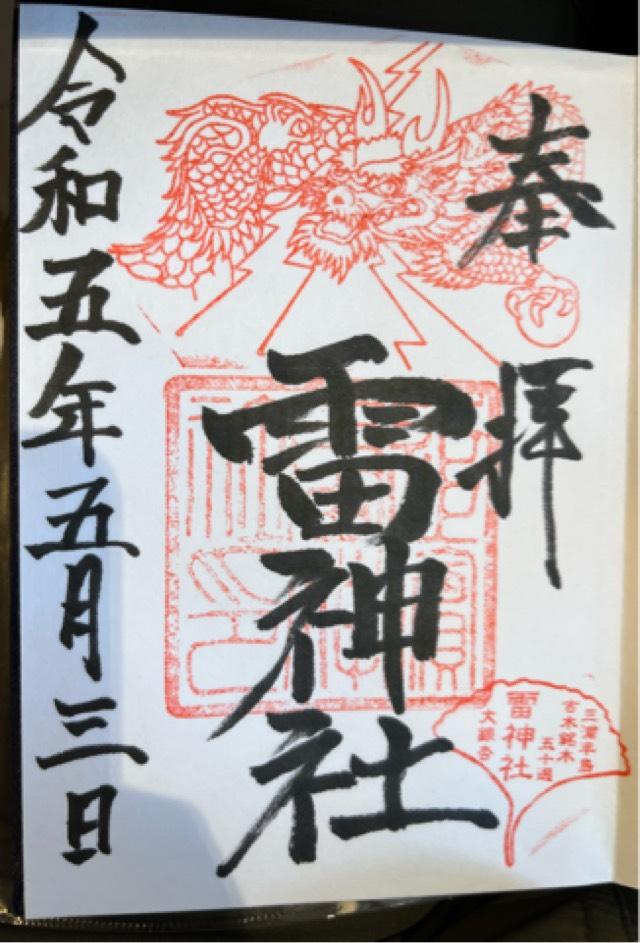 奉拝
雷神社
令和五年五月三日
三浦半島
古木銘木
五十選
雷神社
大銀杏